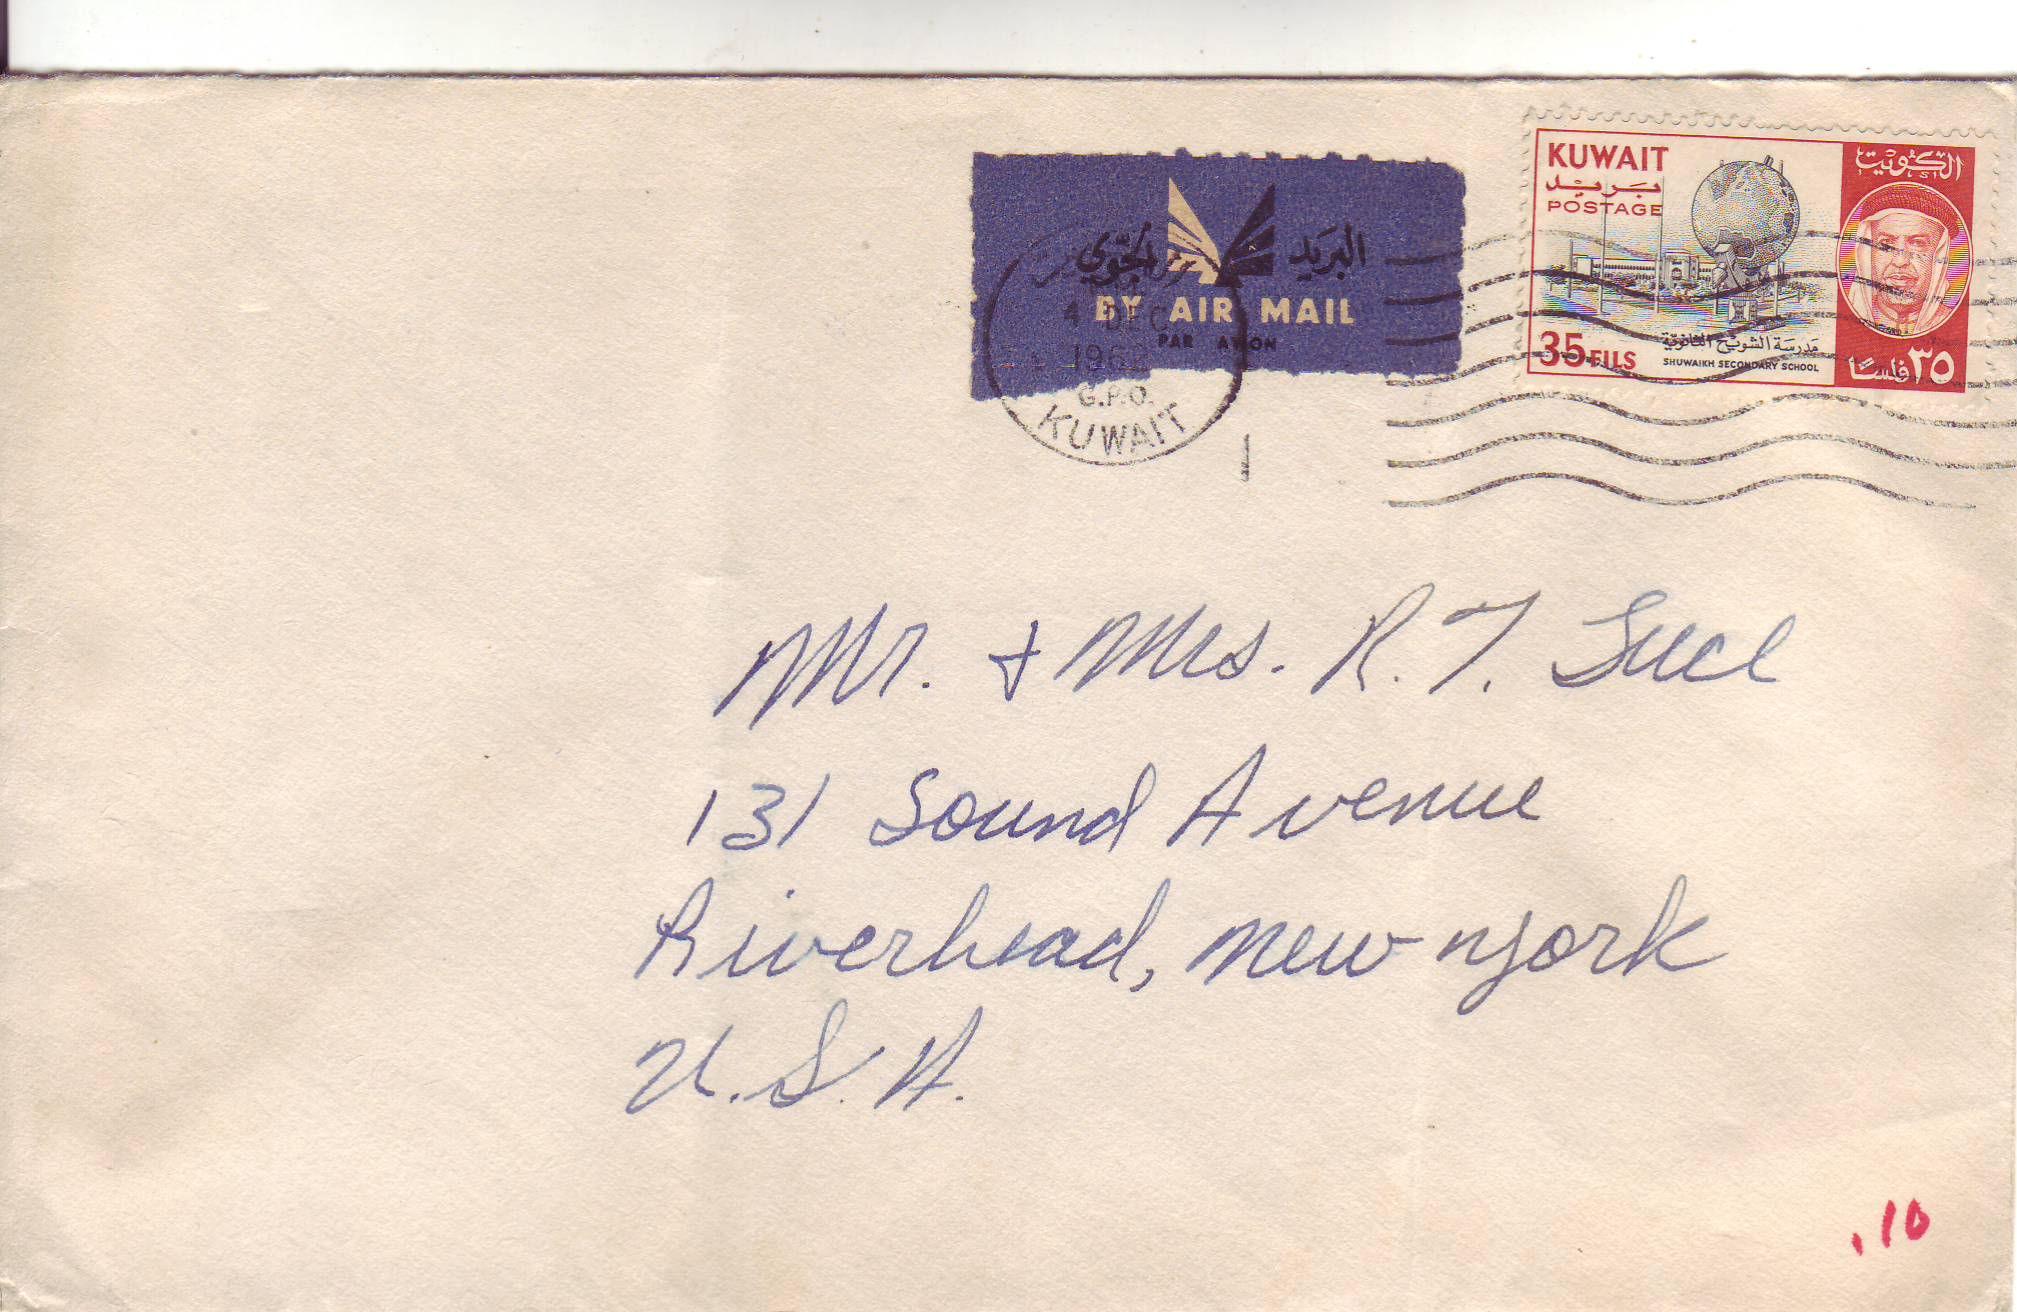 KUWAIT
الكويت
بريد
POSTAGE
البريد الجوي
BY AIR MAIL
PAR AVION
4 DEC
G.P.O.
KUWAIT
مدرسة الشويخ الثانوية
35 FILS
SHUWAIKH SECONDARY SCHOOL
٣٥ فلسًا
Mr. & Mrs. R. T.
131 Sound Avenue
Riverhead, New York
U.S.A.
.10